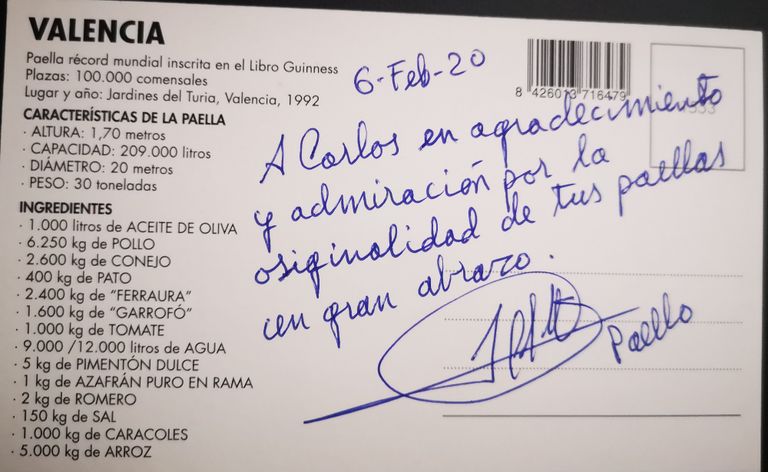 VALENCIA
Paella récord mundial inscrita en el Libro Guinness
Plazas: 100.000 comensales
Lugar y año: Jardines del Turia, Valencia, 1992
CARACTERÍSTICAS DE LA PAELLA
· ALTURA: 1,70 metros
· CAPACIDAD: 209.000 litros
· DIÁMETRO: 20 metros
· PESO: 30 toneladas
INGREDIENTES
· 1.000 litros de ACEITE DE OLIVA
· 6.250 kg de POLLO
· 2.600 kg de CONEJO
· 400 kg de PATO
· 2.400 kg de "FERRAURA"
· 1.600 kg de "GARROFÓ"
· 1.000 kg de TOMATE
· 9.000 /12.000 litros de AGUA
· 5 kg de PIMENTÓN DULCE
· 1 kg de AZAFRÁN PURO EN RAMA
· 2 kg de ROMERO
· 150 kg de SAL
· 1.000 kg de CARACOLES
· 5.000 kg de ARROZ
8 426013 716479
6-Feb-20
A Carlos en agradecimiento
y admiración por la
originalidad de tus paellas
un gran abrazo.
Paello